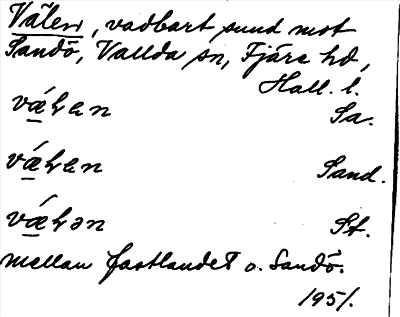 Välen, vadbart sund mot
Sandö, Vallda sn, Fjäre hd,
Hall. l.
vǽɫen Sa.
vǽɫen Sand.
vǽɫən St.
mellan fastlandet o. Sandö.
1951.